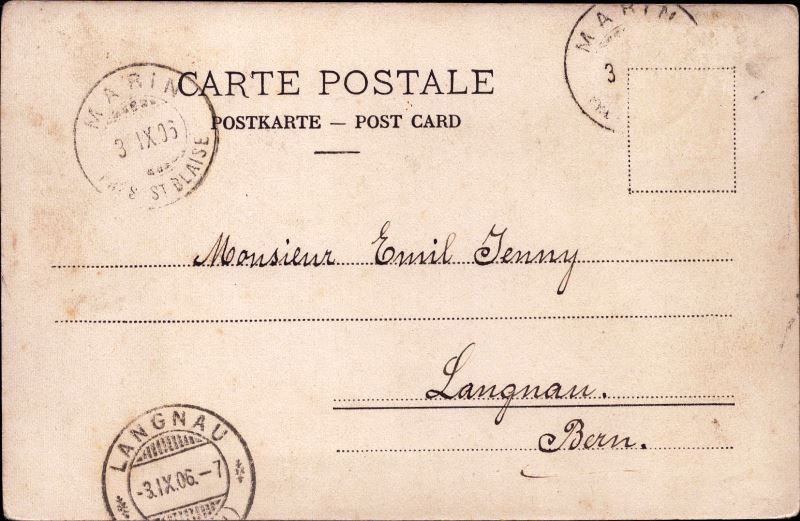 MARIN
3
CARTE POSTALE
MARIN
3 IX.06
ST BLAISE
POSTKARTE — POST CARD
Monsieur Emil Jenny
Langnau.
Bern.
LANGNAU
-3.IX.06.-7